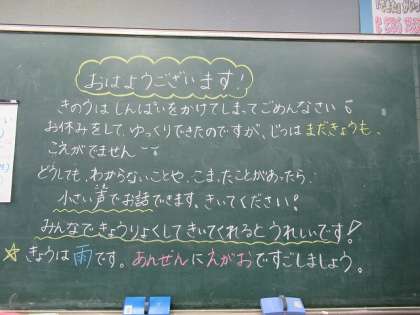 おはようございます!
きのうはしんぱいをかけてしまってごめんなさい
お休みをして、ゆっくりできたのですが、じつはまだきょうも、
こえがでません
どうしても、わからないことや、こまったことがあったら、
小さい声でお話できます。きいてください!
みんなできょうりょくしてきいてくれるとうれしいです!
☆きょうは雨です。あんぜんにえがおですごしましょう。